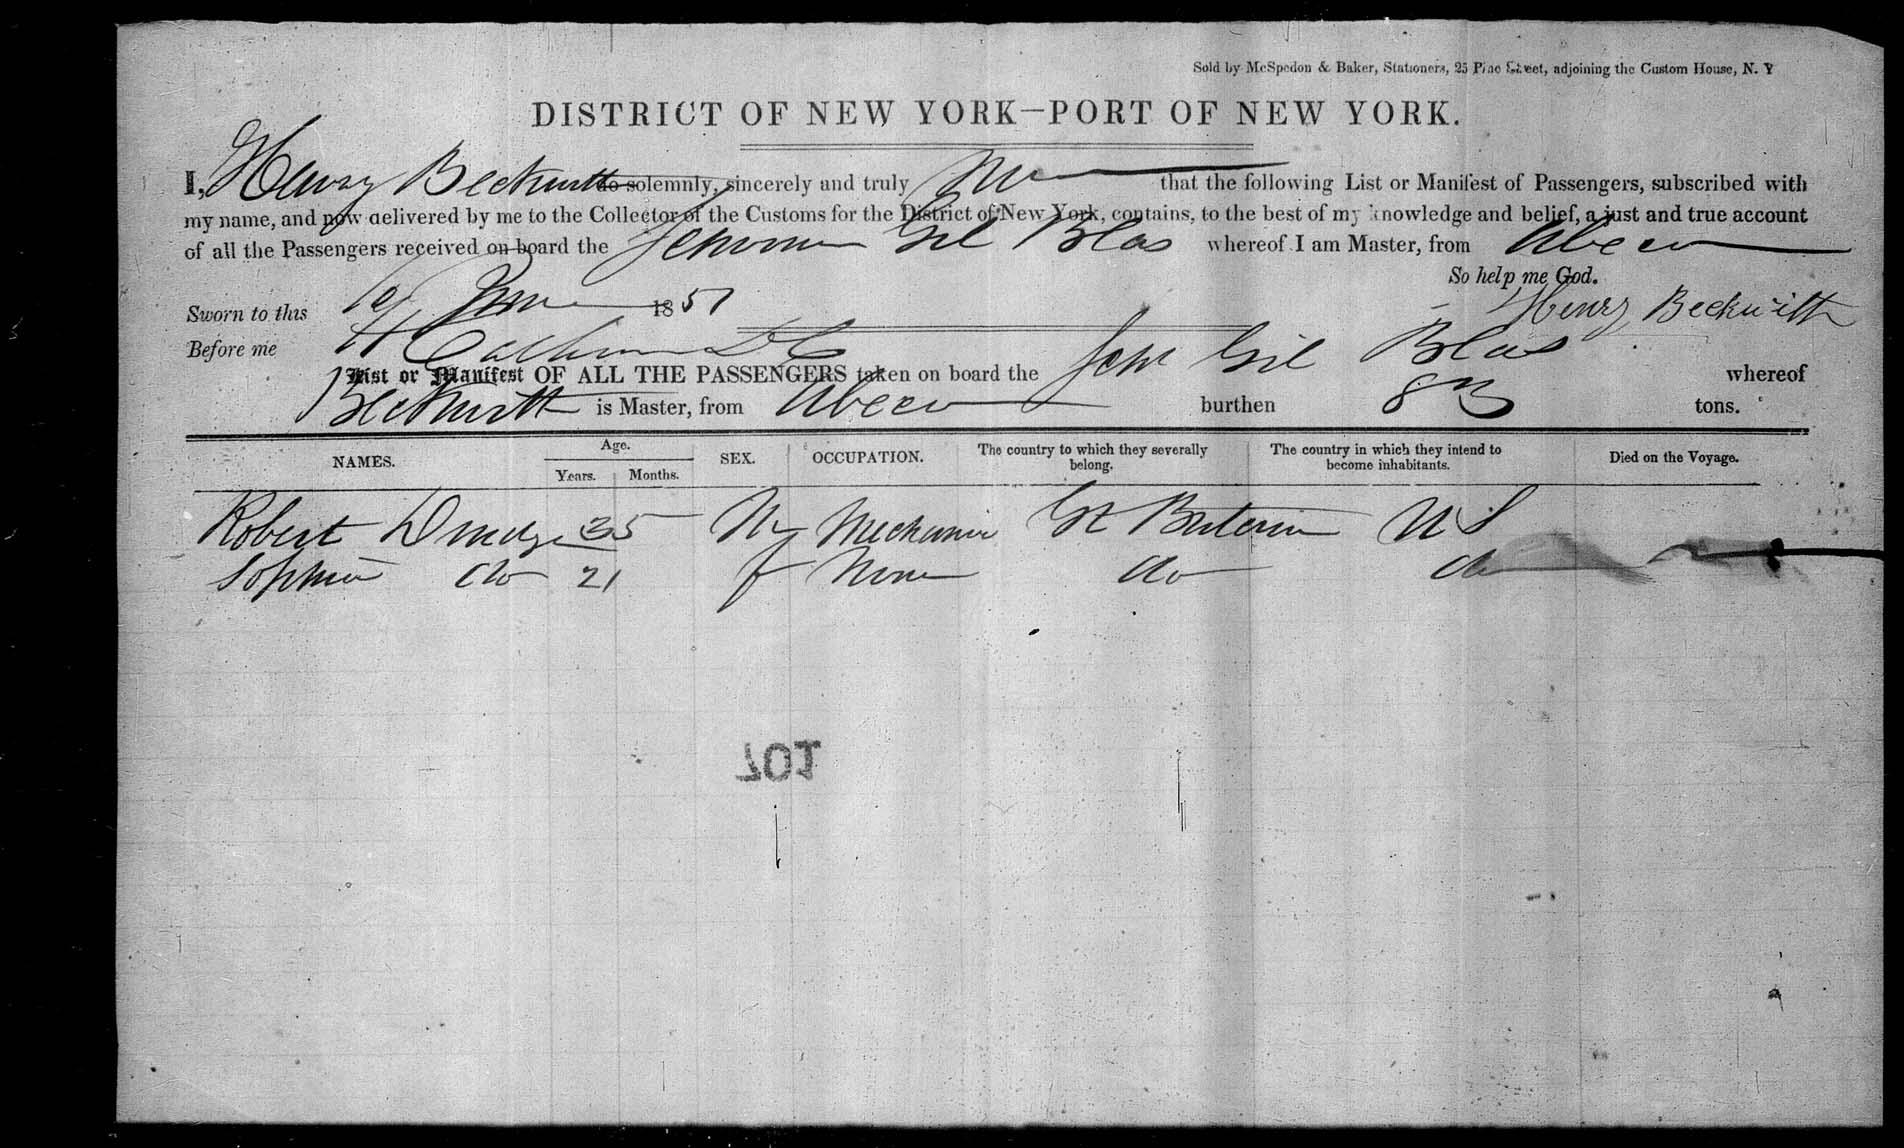 Sold by McSpedon & Baker, Stationers, 25 Pine Street, adjoining the Custom House, N. Y
DISTRICT OF NEW YORK—PORT OF NEW YORK.
I, Henry Beckwith do solemnly, sincerely and truly that the following List or Manifest of Passengers, subscribed with
my name, and now delivered by me to the Collector of the Customs for the District of New York, contains, to the best of my knowledge and belief, a just and true account
of all the Passengers received on board the Gil Blas whereof I am Master, from
So help me God.
Sworn to this 1851 Henry Beckwith
Before me
List or Manifest OF ALL THE PASSENGERS taken on board the Gil Blas whereof
Beckwith is Master, from burthen 83 tons.
NAMES. Age. Years. Months. SEX. OCCUPATION. The country to which they severally belong. The country in which they intend to become inhabitants. Died on the Voyage.
Robert 35 M Mechanic Gt Britain U S
Sophia do 21 f None do do
701